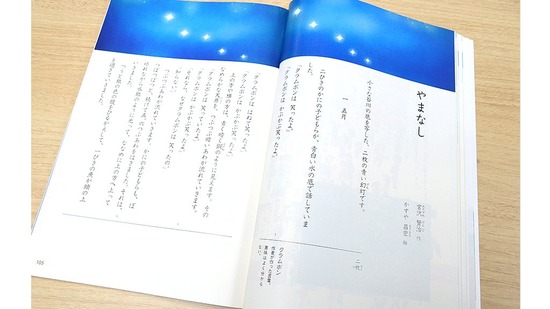 やまなし
宮沢 賢治 作
かすや 昌宏 絵
小さな谷川の底を写した、二枚の青い幻灯です。
一 五月
二ひきのかにの子どもらが、青白い水の底で話していま
した。
「クラムボンは 笑ったよ。」
「クラムボンは かぷかぷ笑ったよ。」
クラムボン
作者が作った言葉。
意味はよく分から
ない。
「クラムボンは はねて笑ったよ。」
「クラムボンは かぷかぷ笑ったよ。」
上の方や横の方は、青く暗く鋼のように見えます。その
なめらかな天井を、つぶつぶ暗いあわが流れていきます。
「クラムボンは 笑っていたよ。」
「クラムボンは かぷかぷ笑ったよ。」
「それなら、なぜクラムボンは 笑ったの。」
「知らない。」
つぶつぶあわが流れていきます。かにの子どもらも、ぽ
つぽつぽつと、続けて五、六つぶあわをはきました。それは、
ゆれながら水銀のように光って、ななめに上の方へ上って
いきました。
つうと銀の色の腹をひるがえして、一ぴきの魚が頭の上
を過ぎていきました。
105